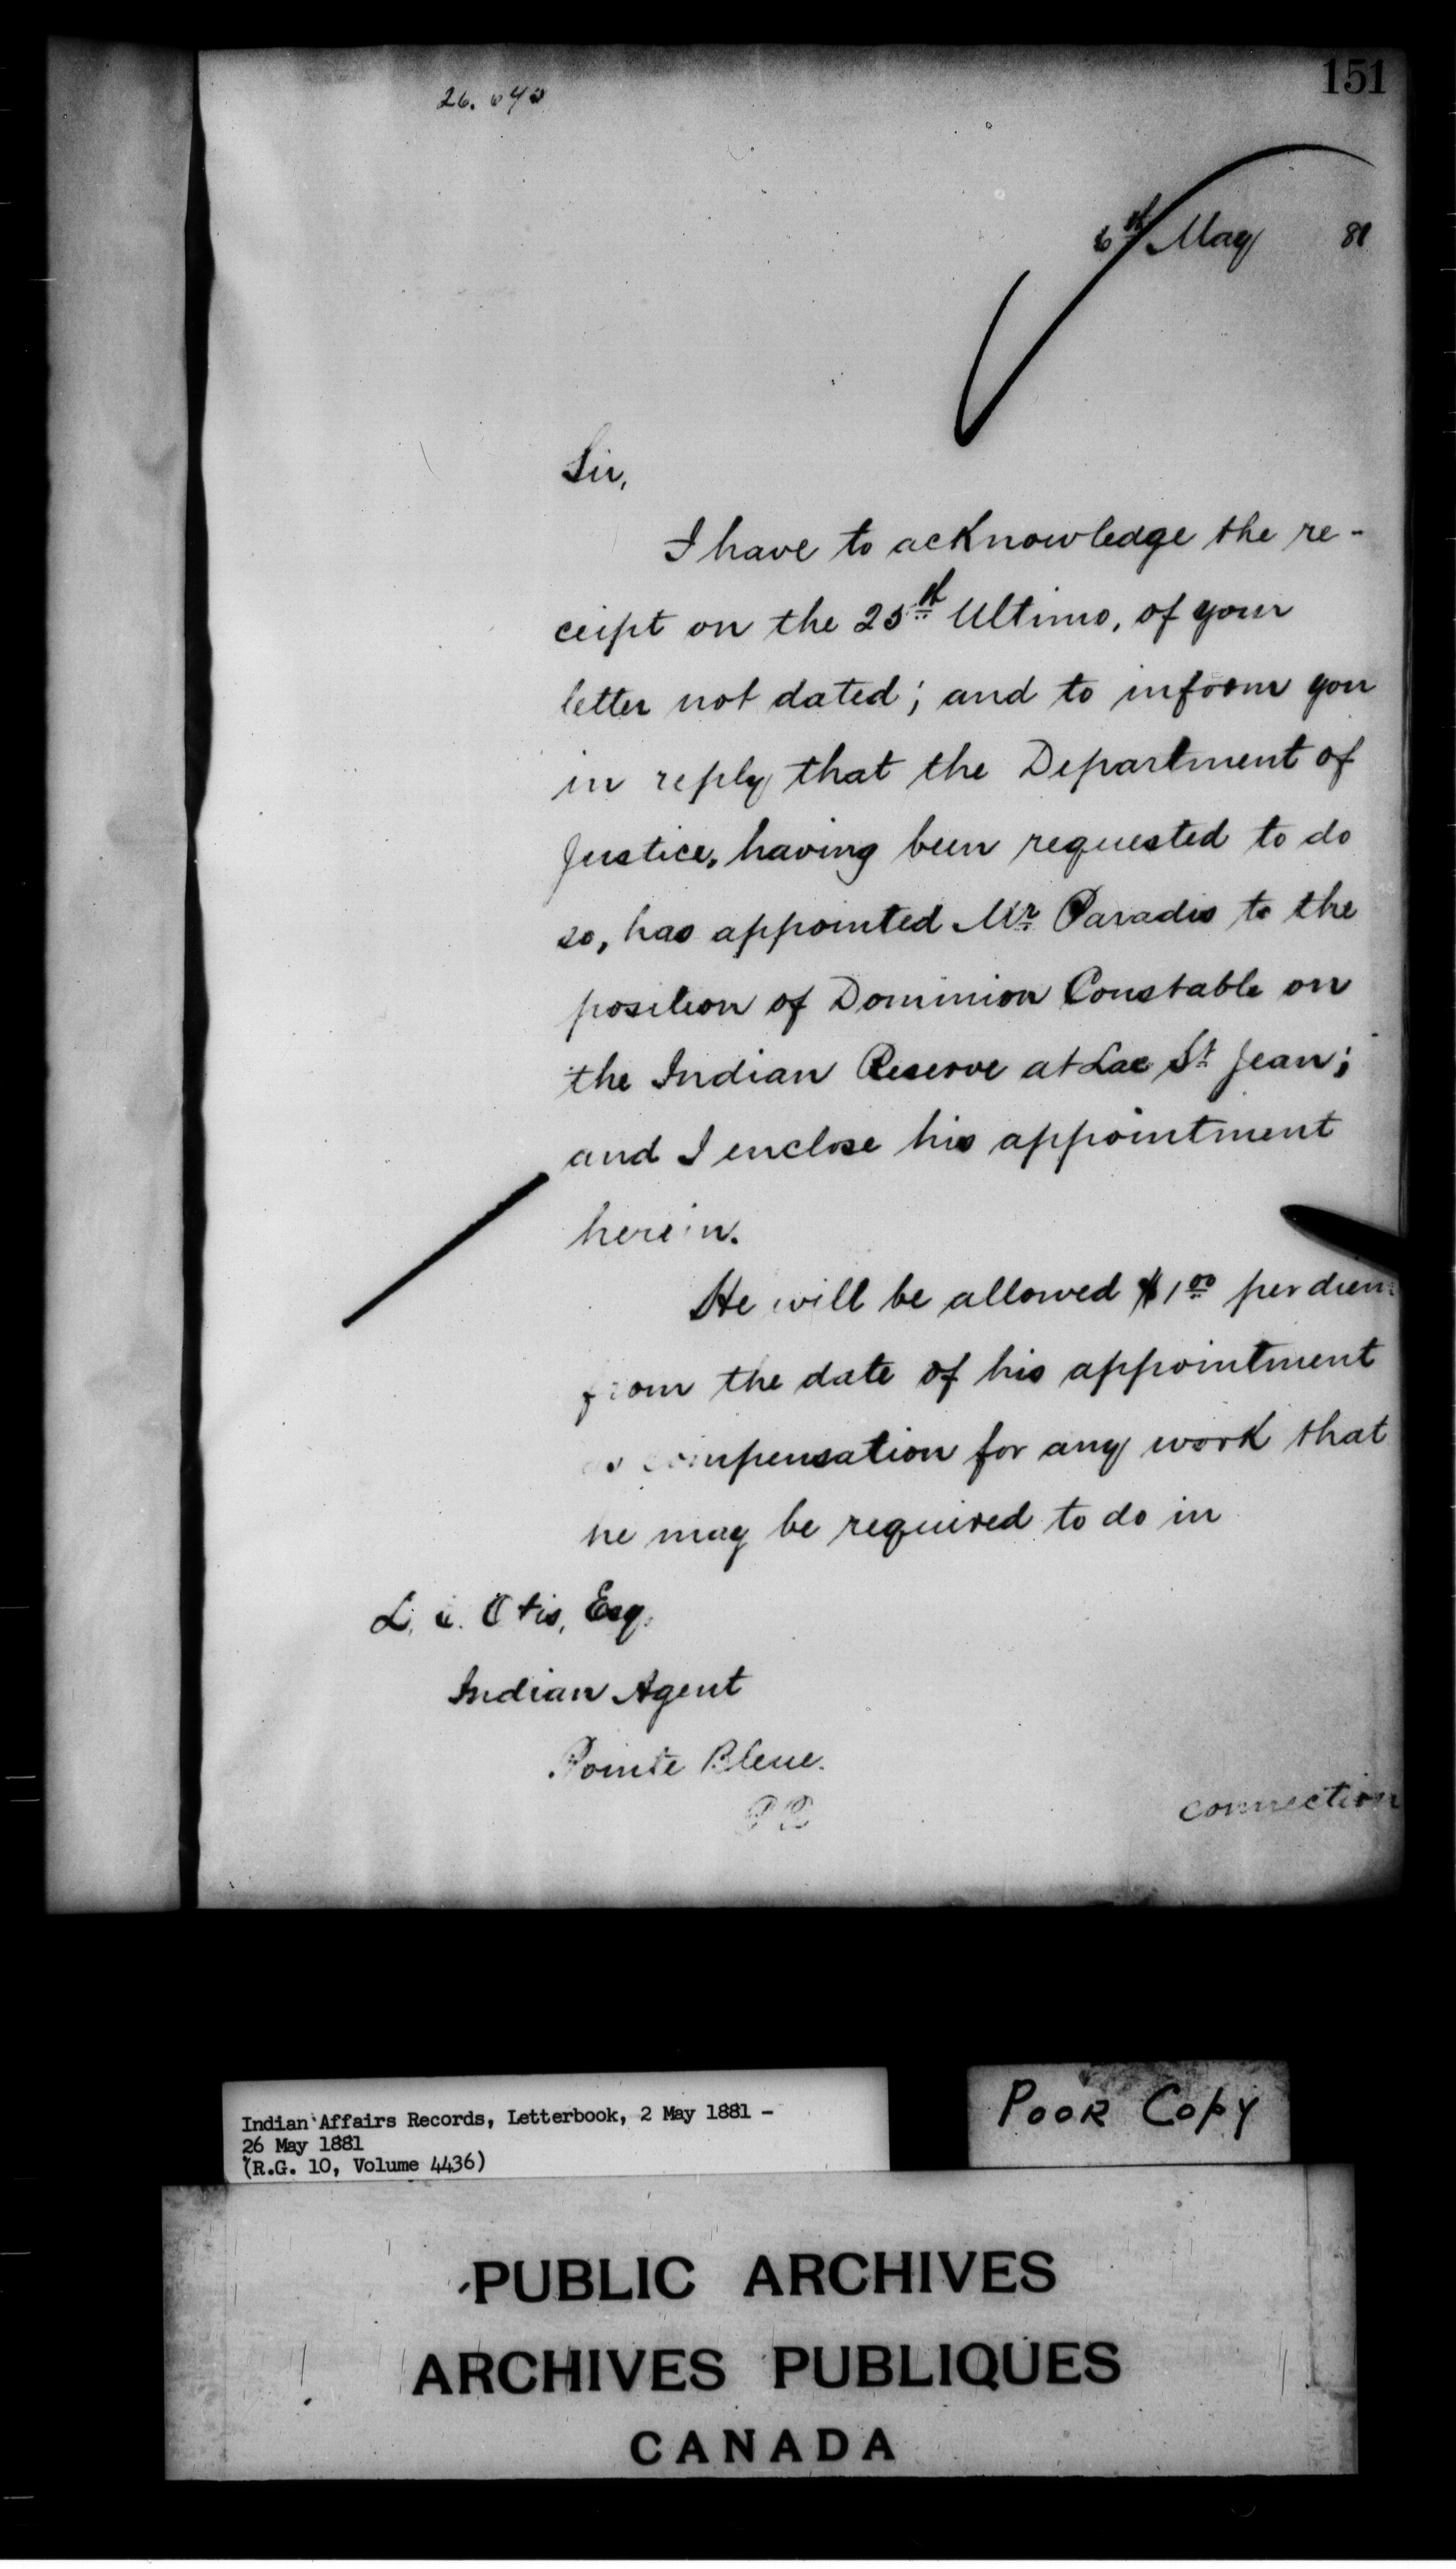 151
26.040
6th May 81
Sir,
I have to acknowledge the re-
ceipt on the 25th Ultimo, of your
letter not dated; and to inform you
in reply that the Department of
Justice, having been requested to do
so, has appointed Mr Paradis to the
position of Dominion Constable on
the Indian Reserve at Lac St Jean;
and I enclose his appointment
herein.
He will be allowed $1 00 per diem
from the date of his appointment
as compensation for any work that
he may be required to do in
L. Otis, Esq.
Indian Agent
Pointe Bleue.
P Q
connection
Indian Affairs Records, Letterbook, 2 May 1881 -
26 May 1881
(R.G. 10, Volume 4436)
Poor Copy
PUBLIC ARCHIVES
ARCHIVES PUBLIQUES
CANADA